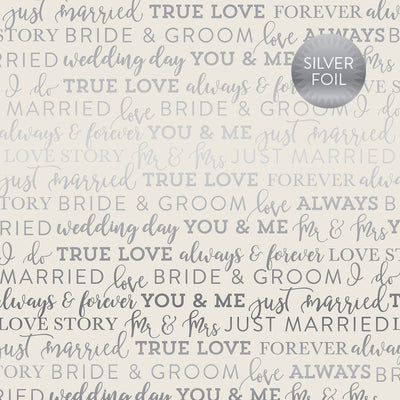 just married TRUE LOVE FOREVER alwa
STORY BRIDE & GROOM love ALWAYS B
RRIED wedding day YOU & ME
SILVER
FOIL
I do TRUE LOVE always & forever LOVE S
MARRIED love BRIDE & GROOM I do
always & forever YOU & ME just married
LOVE STORY Mr & Mrs JUST MARRIED
just married TRUE LOVE FOREVER alwa
STORY BRIDE & GROOM love ALWAYS B
RRIED wedding day YOU & ME Mr & Mrs Y
I do TRUE LOVE always & forever LOVE S
MARRIED love BRIDE & GROOM I do
always & forever YOU & ME just married T
LOVE STORY Mr & Mrs JUST MARRIED L
just married TRUE LOVE FOREVER alwa
STORY BRIDE & GROOM love ALWAYS B
RRIED wedding day YOU & ME Mr & Mrs Y